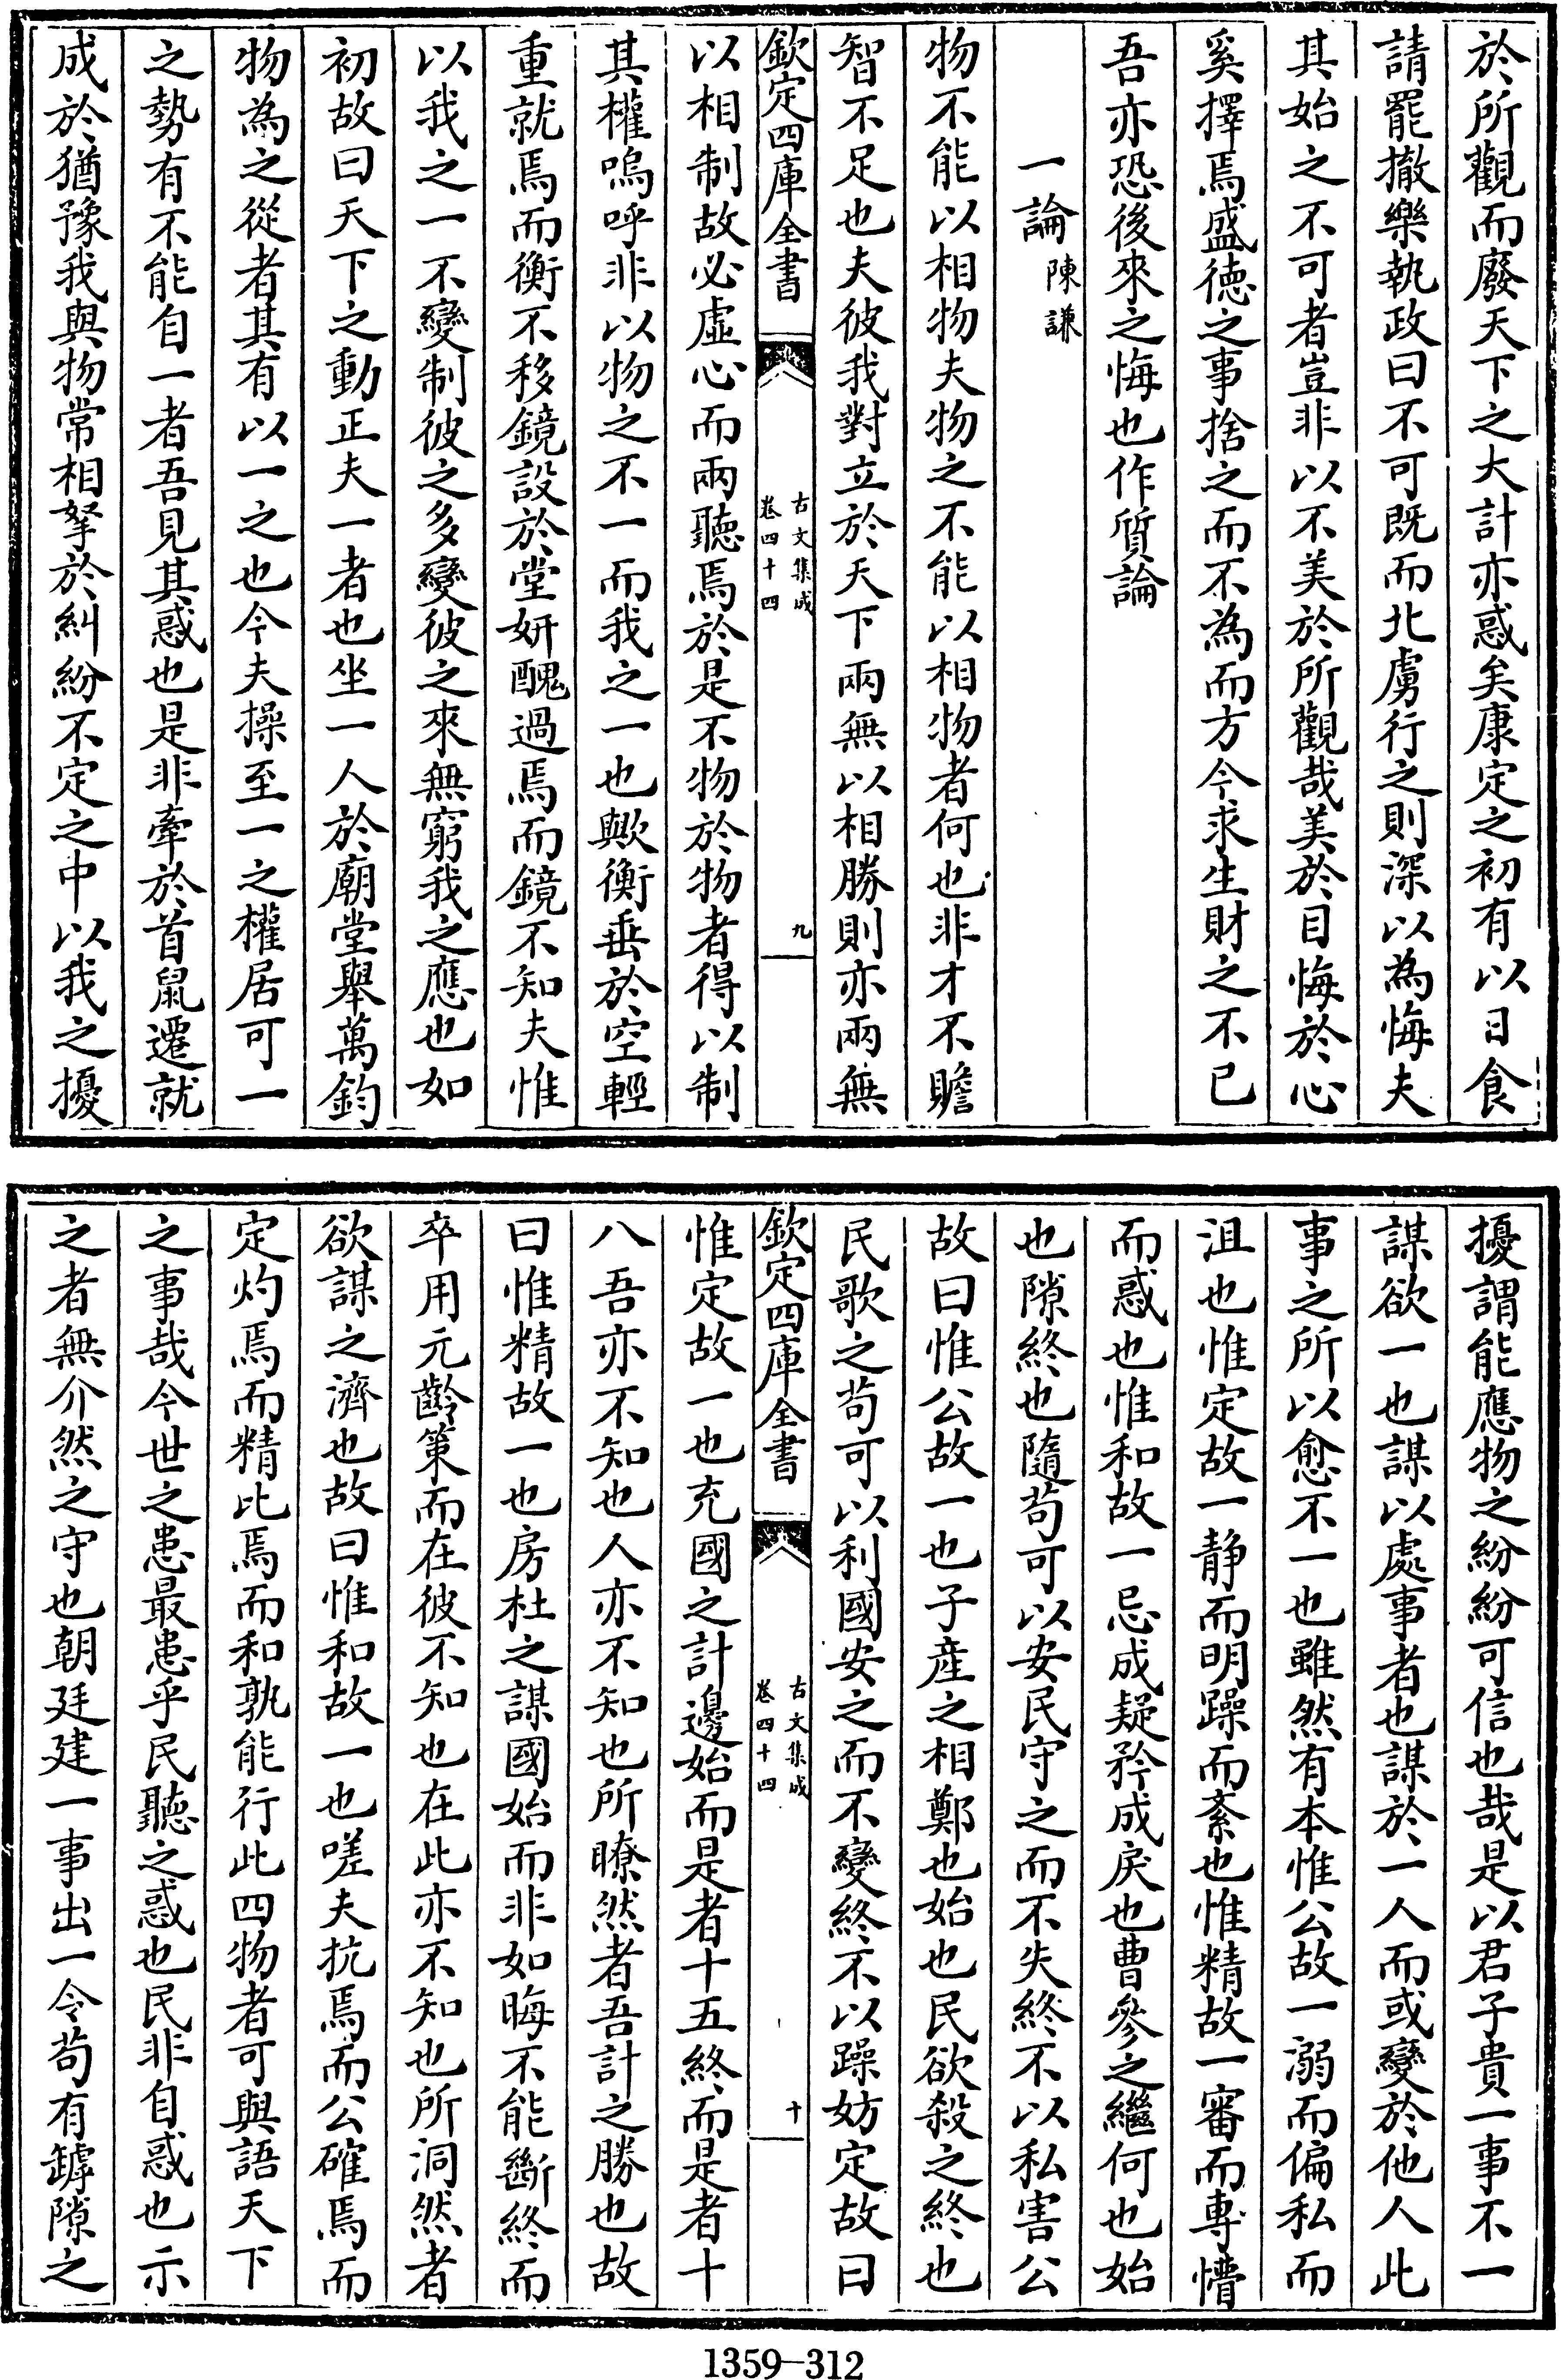 於所觀而廢天下之大計亦惑矣康定之初有以日食
請罷撤樂執政曰不可既而北虜行之則深以為悔夫
其始之不可者豈非以不美於所觀哉美於目悔於心
奚擇焉盛徳之事捨之而不為而方今求生財之不已
吾亦恐後來之悔也作質論
一論 陳謙
物不能以相物夫物之不能以相物者何也非才不贍
智不足也夫彼我對立於天下兩無以相勝則亦兩無
欽定四庫全書
古文集成
卷四十四
九
以相制故必虛心而兩聽焉於是不物於物者得以制
其權嗚呼非以物之不一而我之一也歟衡垂於空輕
重就焉而衡不移鏡設於堂妍醜過焉而鏡不知夫惟
以我之一不變制彼之多變彼之來無窮我之應也如
初故曰天下之動正夫一者也坐一人於廟堂舉萬鈞
物為之從者其有以一之也今夫操至一之權居可一
之勢有不能自一者吾見其惑也是非牽於首鼠遷就
成於猶豫我與物常相拏於糾紛不定之中以我之擾
擾謂能應物之紛紛可信也哉是以君子貴一事不一
謀欲一也謀以處事者也謀於一人而或變於他人此
事之所以愈不一也雖然有本惟公故一溺而偏私而
沮也惟定故一靜而明躁而紊也惟精故一審而專懵
而惑也惟和故一忌成疑矜成戾也曹參之繼何也始
也隙終也隨苟可以安民守之而不失終不以私害公
故曰惟公故一也子產之相鄭也始也民欲殺之終也
民歌之苟可以利國安之而不變終不以躁妨定故曰
欽定四庫全書
古文集成
卷四十四
十
惟定故一也充國之計邊始而是者十五終而是者十
八吾亦不知也人亦不知也所瞭然者吾計之勝也故
曰惟精故一也房杜之謀國始而非如晦不能斷終而
卒用元齡策而在彼不知也在此亦不知也所洞然者
欲謀之濟也故曰惟和故一也嗟夫抗焉而公確焉而
定灼焉而精比焉而和孰能行此四物者可與語天下
之事哉今世之患最患乎民聽之惑也民非自惑也示
之者無介然之守也朝廷建一事出一令苟有罅隙之
1359-312